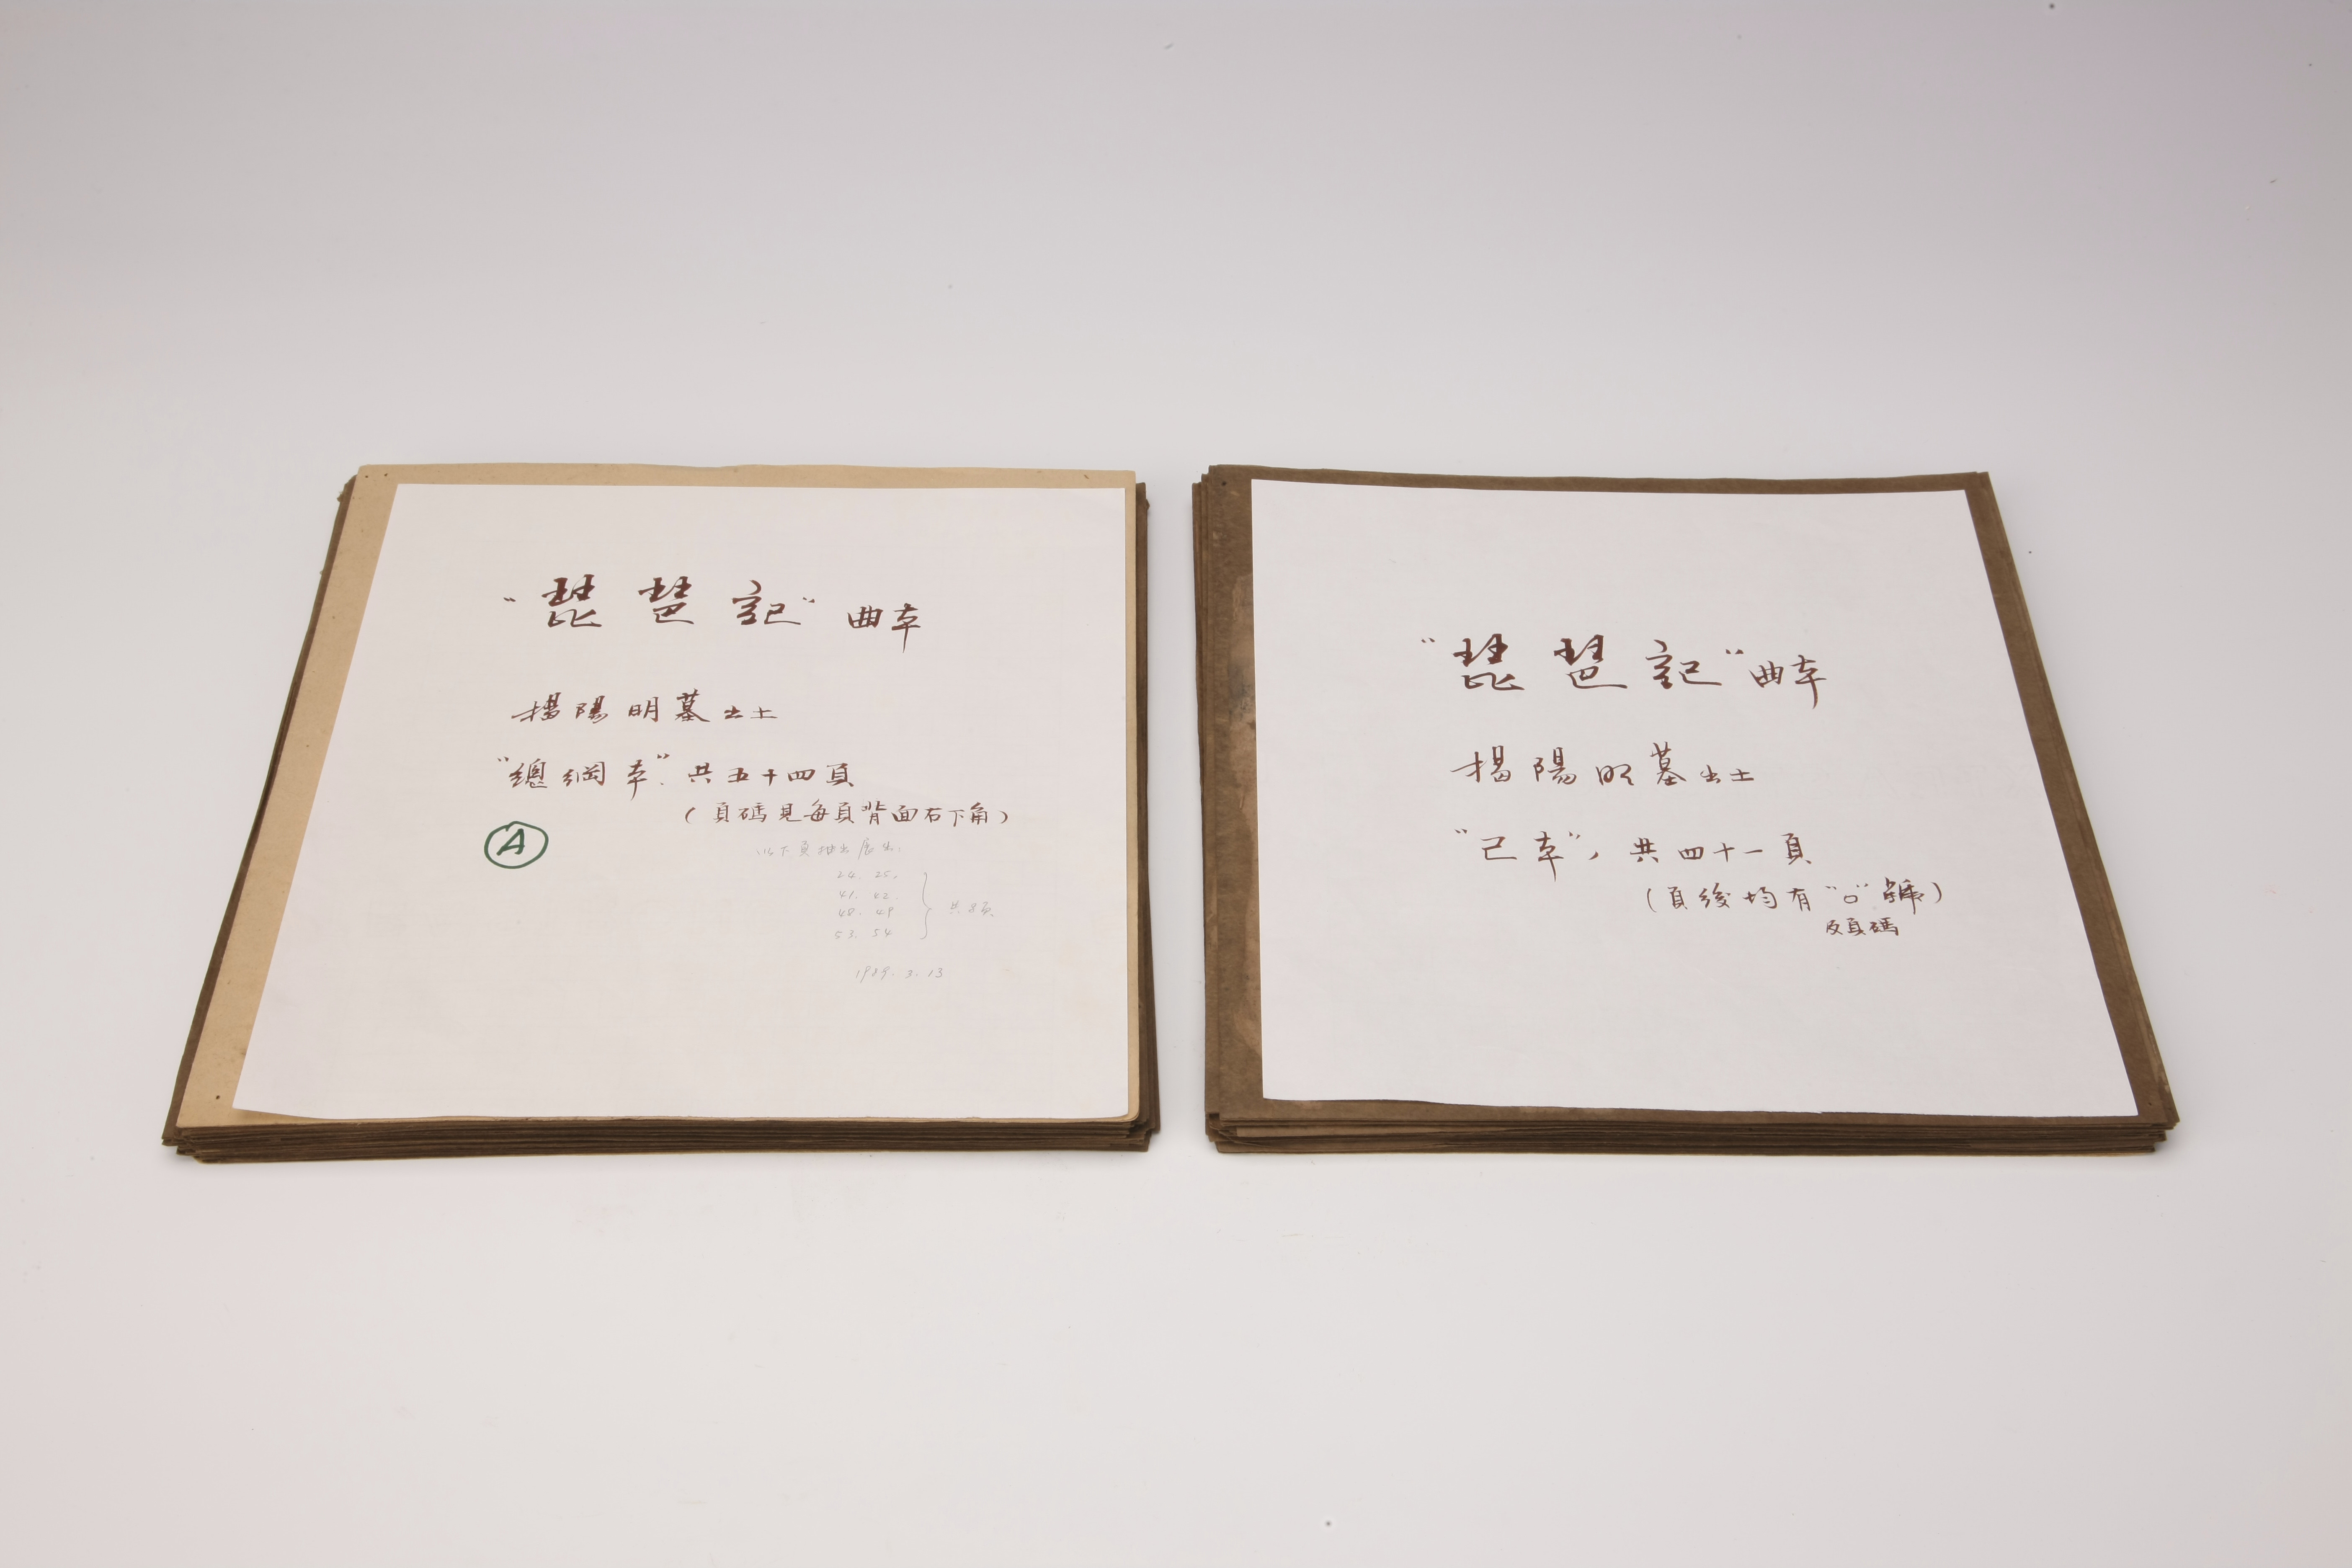 “琵琶記”曲本
揭陽明墓出土
“總綱本”. 共五十四頁
(頁碼見每頁背面右下角)
A
以下頁抽出展出:
24. 25.
41. 42.
48. 49
53. 54
共8頁
1989. 3. 13
“琵琶記”曲本
揭陽明墓出土
“己本”, 共四十一頁
(頁後均有“口”號)
及頁碼